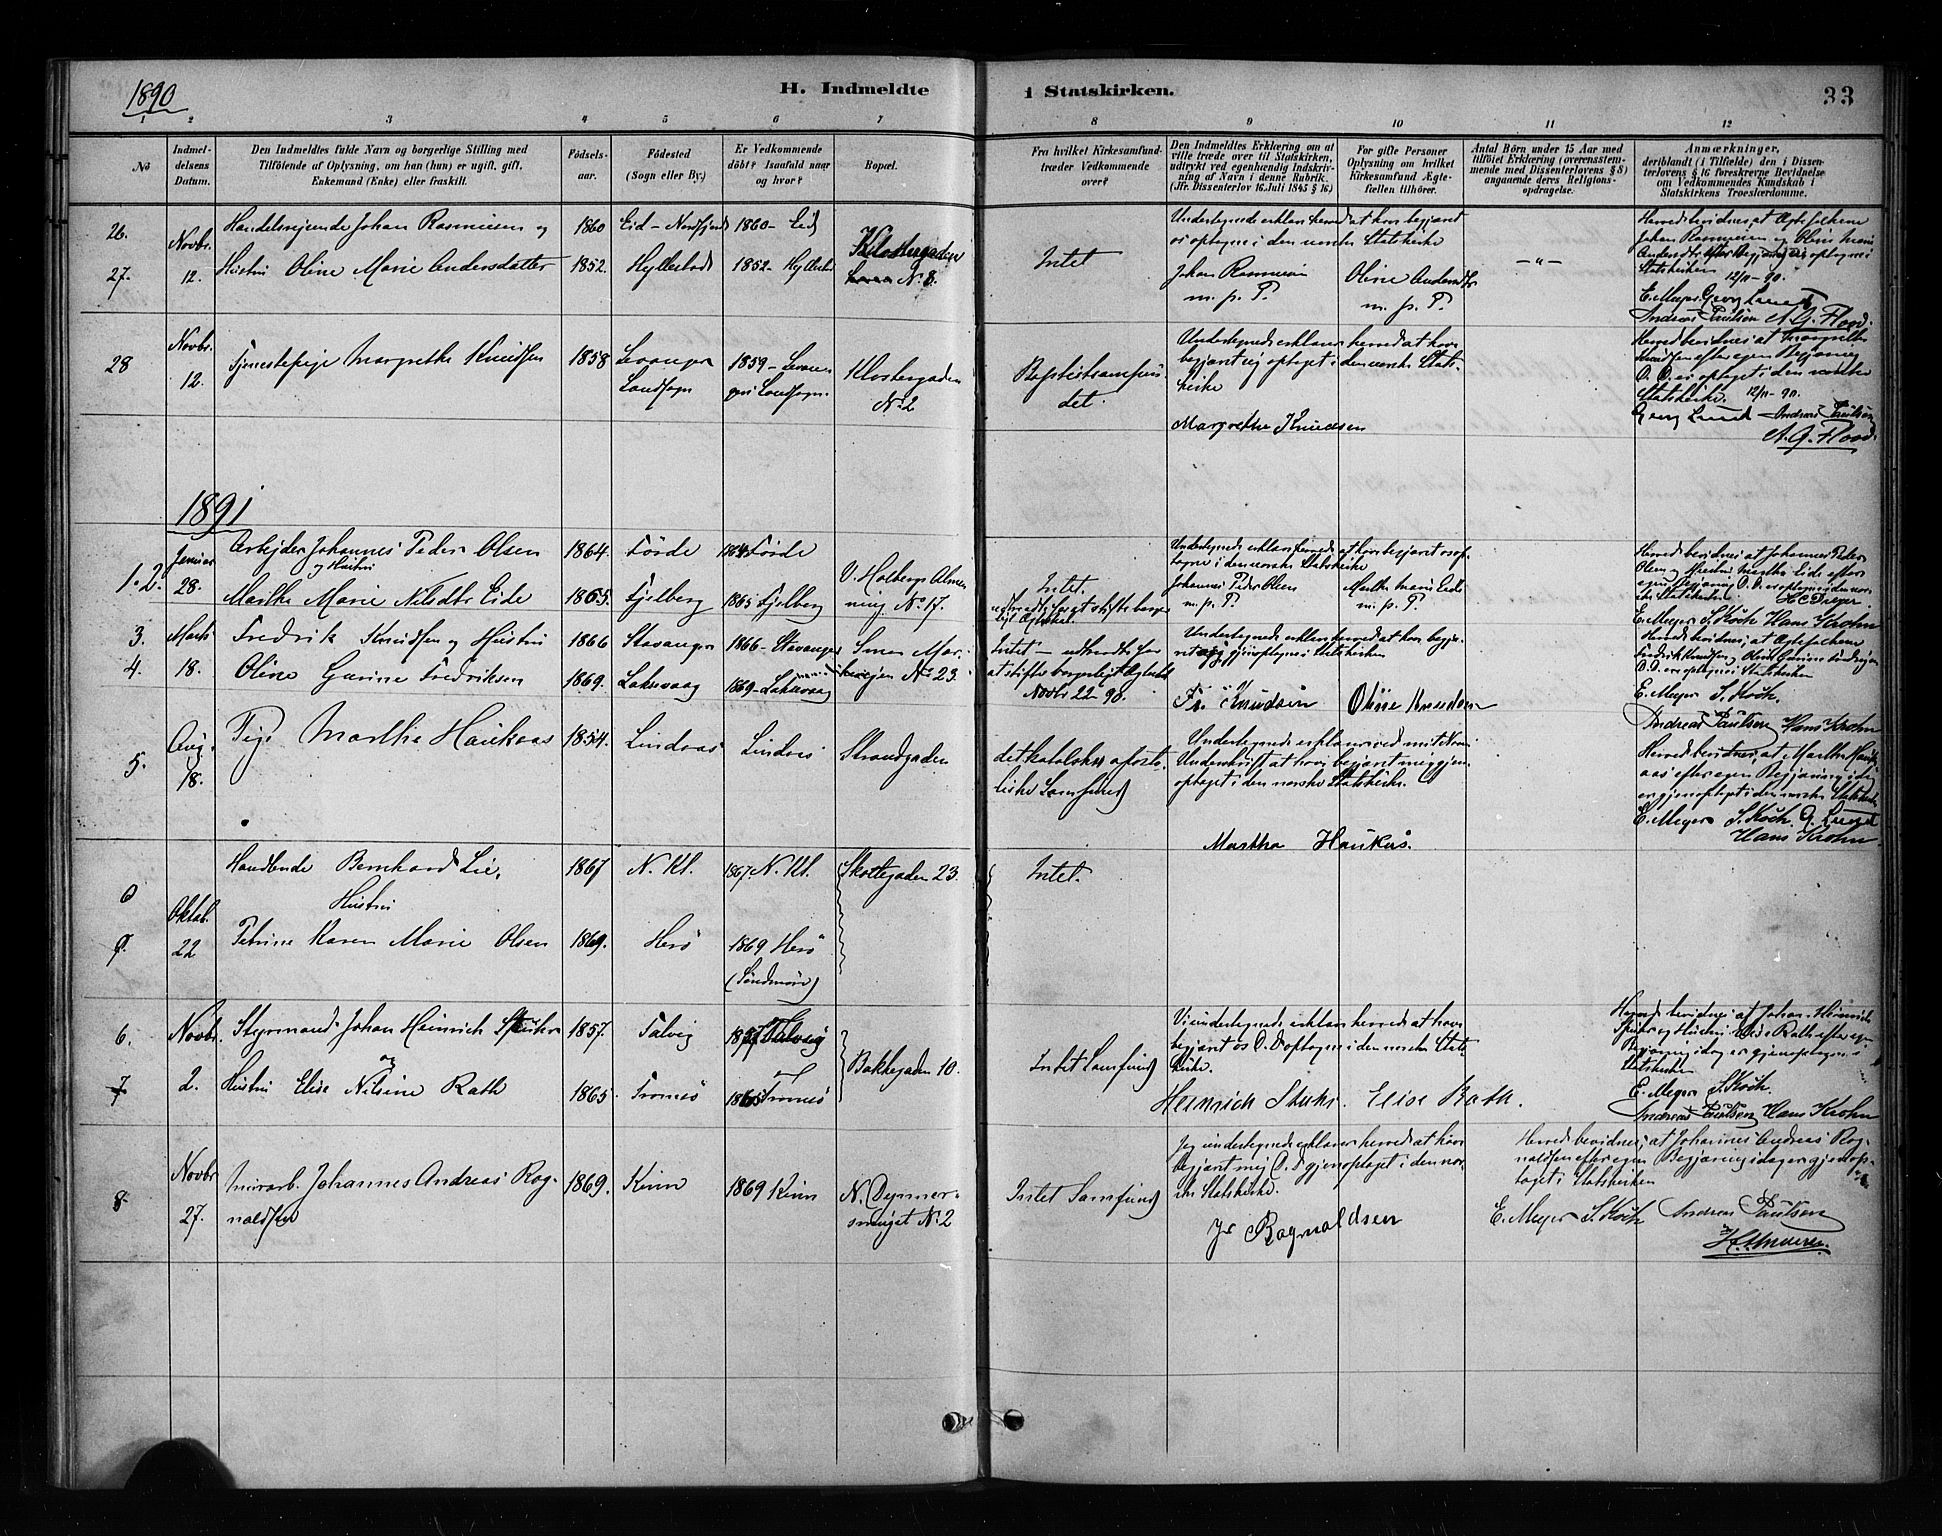 1890
H. Indmeldte
i Statskirken.
33
1 2 3 4 5 6 7 8 9 10 11 12
No
Indmel-
delsens
Datum.
Den Indmeldtes fulde Navn og borgerlige Stilling med
Tilföiende af Oplysning, om han (hun) er ugift, gift,
Enkemand (Enke) eller fraskilt.
Födsels-
aar.
Födested
(Sogn eller By.)
Er Vedkommende
döbt? Isaafald naar
og hvor?
Bopæl.
Fra hvilket Kirkesamfund
træder Vedkommende
over?
Den Indmeldtes Erklæring om at
ville træde over til Statskirken,
udtrykt ved egenhændig Indskriv-
ning af Navn i denne Rubrik.
(Jfr. Dissenterlov 16 Juli 1845 § 16)
For gifte Personer
Oplysning om hvilket
Kirkesamfund Ægte-
fællen tilhörer.
Antal Börn under 15 Aar med
tilföiet Erklæring (overensstem-
mende med Dissenterloven § 8)
angaaende deres Religions-
opdragelse.
Anmærkninger,
deriblandt (i Tilfælde) den i Dissen-
terlovens § 16 foreskrevne Bevidnelse
om Vedkommendes Kundskab i
Statskirkens Troeslærdomme.
26.
27.
Novbr.
12.
Handelsrejsende Johan Rasmussen og
Hustru Oline Marie Andersdatter
1860
1852.
Eid - Nordfjord
Hyllestad
1860 - Eid
1852 - Hyllestad
Klostergaden
N. 8.
Intet
Undertegnede erklære herved at have begjært
os optagne i den norske Statskirke
Johan Rasmussen
m. p. P.
Oline Andersdtr
m. p. P.
— " —
Herved bevidnes, at Ægtefolkene
Johan Rasmussen og Oline Marie
Andersdtr efter Begjæring er optagne i
Statskirken 12/11-90.
E. Meyer. Georg Lund
Andreas Paulsen A. G. Flood.
28
Novbr.
12.
Tjenestepige Margrethe Knudsen
1858
Levanger
Landsogn
1859 - Levan-
ger Landsogn.
Klostergaden
N. 2
Baptistsamfun-
det.
Undertegnede erklærer herved at have
begjært mig optaget i den norske Stats-
kirke
Margrethe Knudsen
Herved bevidnes at Margrethe
Knudsen efter egen Begjæring
D. D. er optaget i den norske
Statskirke. 12/11-90.
Georg Lund Andreas Paulsen
A. G. Flood.
1891
1. 2.
Januar
28.
Arbejder Johannes Peder Olsen
og Hustru
Marthe Marie Nilsdtr Eide
1864.
1865.
Förde
Fjelberg
1864 Förde
1865 Fjelberg
V. Holbergs Almen
ning No 17.
Intet.
Undertegnede erklære herved at have begjært os op-
tagne i den norske Statskirke
Johannes Peder Olsen
m. p. P.
Marthe Marie Eide
m. p. P.
Herved bevidnes at Johannes Peder
Olsen og Hustru Marthe Eide efter
egen Begjæring D. D. er optagne i den nor-
ske Statskirke. H C Dreyer.
E. Meyer S. Koch Hans Krohn
3
4
Marts
18.
Fredrik Knudsen og Hustru
Oline Gurine Fredriksen
1866
1869.
Stavanger
Laksevaag
1866 - Stavanger
1869 - Laksevaag
No 23.
Intet - udtraadt for
at stifte borgerligt Ægteskab
Novbr 22 - 90.
Undertegnede erklære herved at have begjæ-
ret gjenoptagne i Statskirken
Fr. Knudsen Oline Knudsen
Herved bevidnes, at Ægtefolkene
Fredrik Knudsen og Oline Gurine Fredriksen
D. D. er optagne i Statskirken
E. Meyer S. Koch.
Andreas Paulsen Hans Krohn
5.
Aug.
18.
Pige Marthe Haukaas
1854.
Lindaas
Lindaas
Strandgaden
det katolske aposto-
liske Samfund
Undertegnede erklærer ved mit Navns
Underskrift at have begjært mig gjen-
optaget i den norske Statskirke.
Martha Haukås.
Herved bevidnes, at Marthe Hauk-
aas efter egen Begjæring i dag
er gjenoptaget i den norske Statskirke
E. Meyer S. Koch. G. Lund
Hans Krohn.
6
7.
Oktob.
22
Handlende Bernhard Lie,
Hustru
Petrine Karen Marie Olsen
1867
1869.
N. Kk.
Herö
1867. N. Kk.
1869 Herö
(Söndmöre)
Skottegaden 23.
Intet.
6.
7
Novbr.
2.
Styrmand Johan Heinrich Stuhr
og
Hustru Elise Nilsine Rath
1857.
1865.
Talvig
Tromsö
1857 Talvig
1865 Tromsö
Bakkegaden 10.
Intet Samfund
Vi undertegnede erklære herved at have
begjært os D. D. optagne i den norske Stats-
kirke.
Heinrich Stuhr. Elise Rath.
Herved bevidnes at Johan Heinrich
Stuhr og Hustru Elise Rath efter egen
Begjæring i dag er gjenoptagne i
Statskirken
E. Meyer S. Koch.
Andreas Paulsen Hans Krohn
8.
Novbr
27.
Murarb. Johannes Andreas Rog-
naldsen
1869.
Kinn
1869 Kinn
N. Dypmar-
smuget N. 2
Intet Samfund
Jeg undertegnede erklærer herved at have
begjært mig D. D. gjenoptaget i den nor-
ske Statskirke.
Js Rognaldsen
Herved bevidnes, at Johannes Andreas Rog-
naldsen efter egen Begjæring i dag er gjenop-
taget i Statskirken
E. Meyer S. Koch Andreas Paulsen